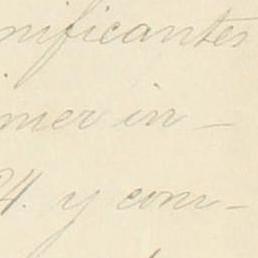 nificantes
imer in-
24. y com-